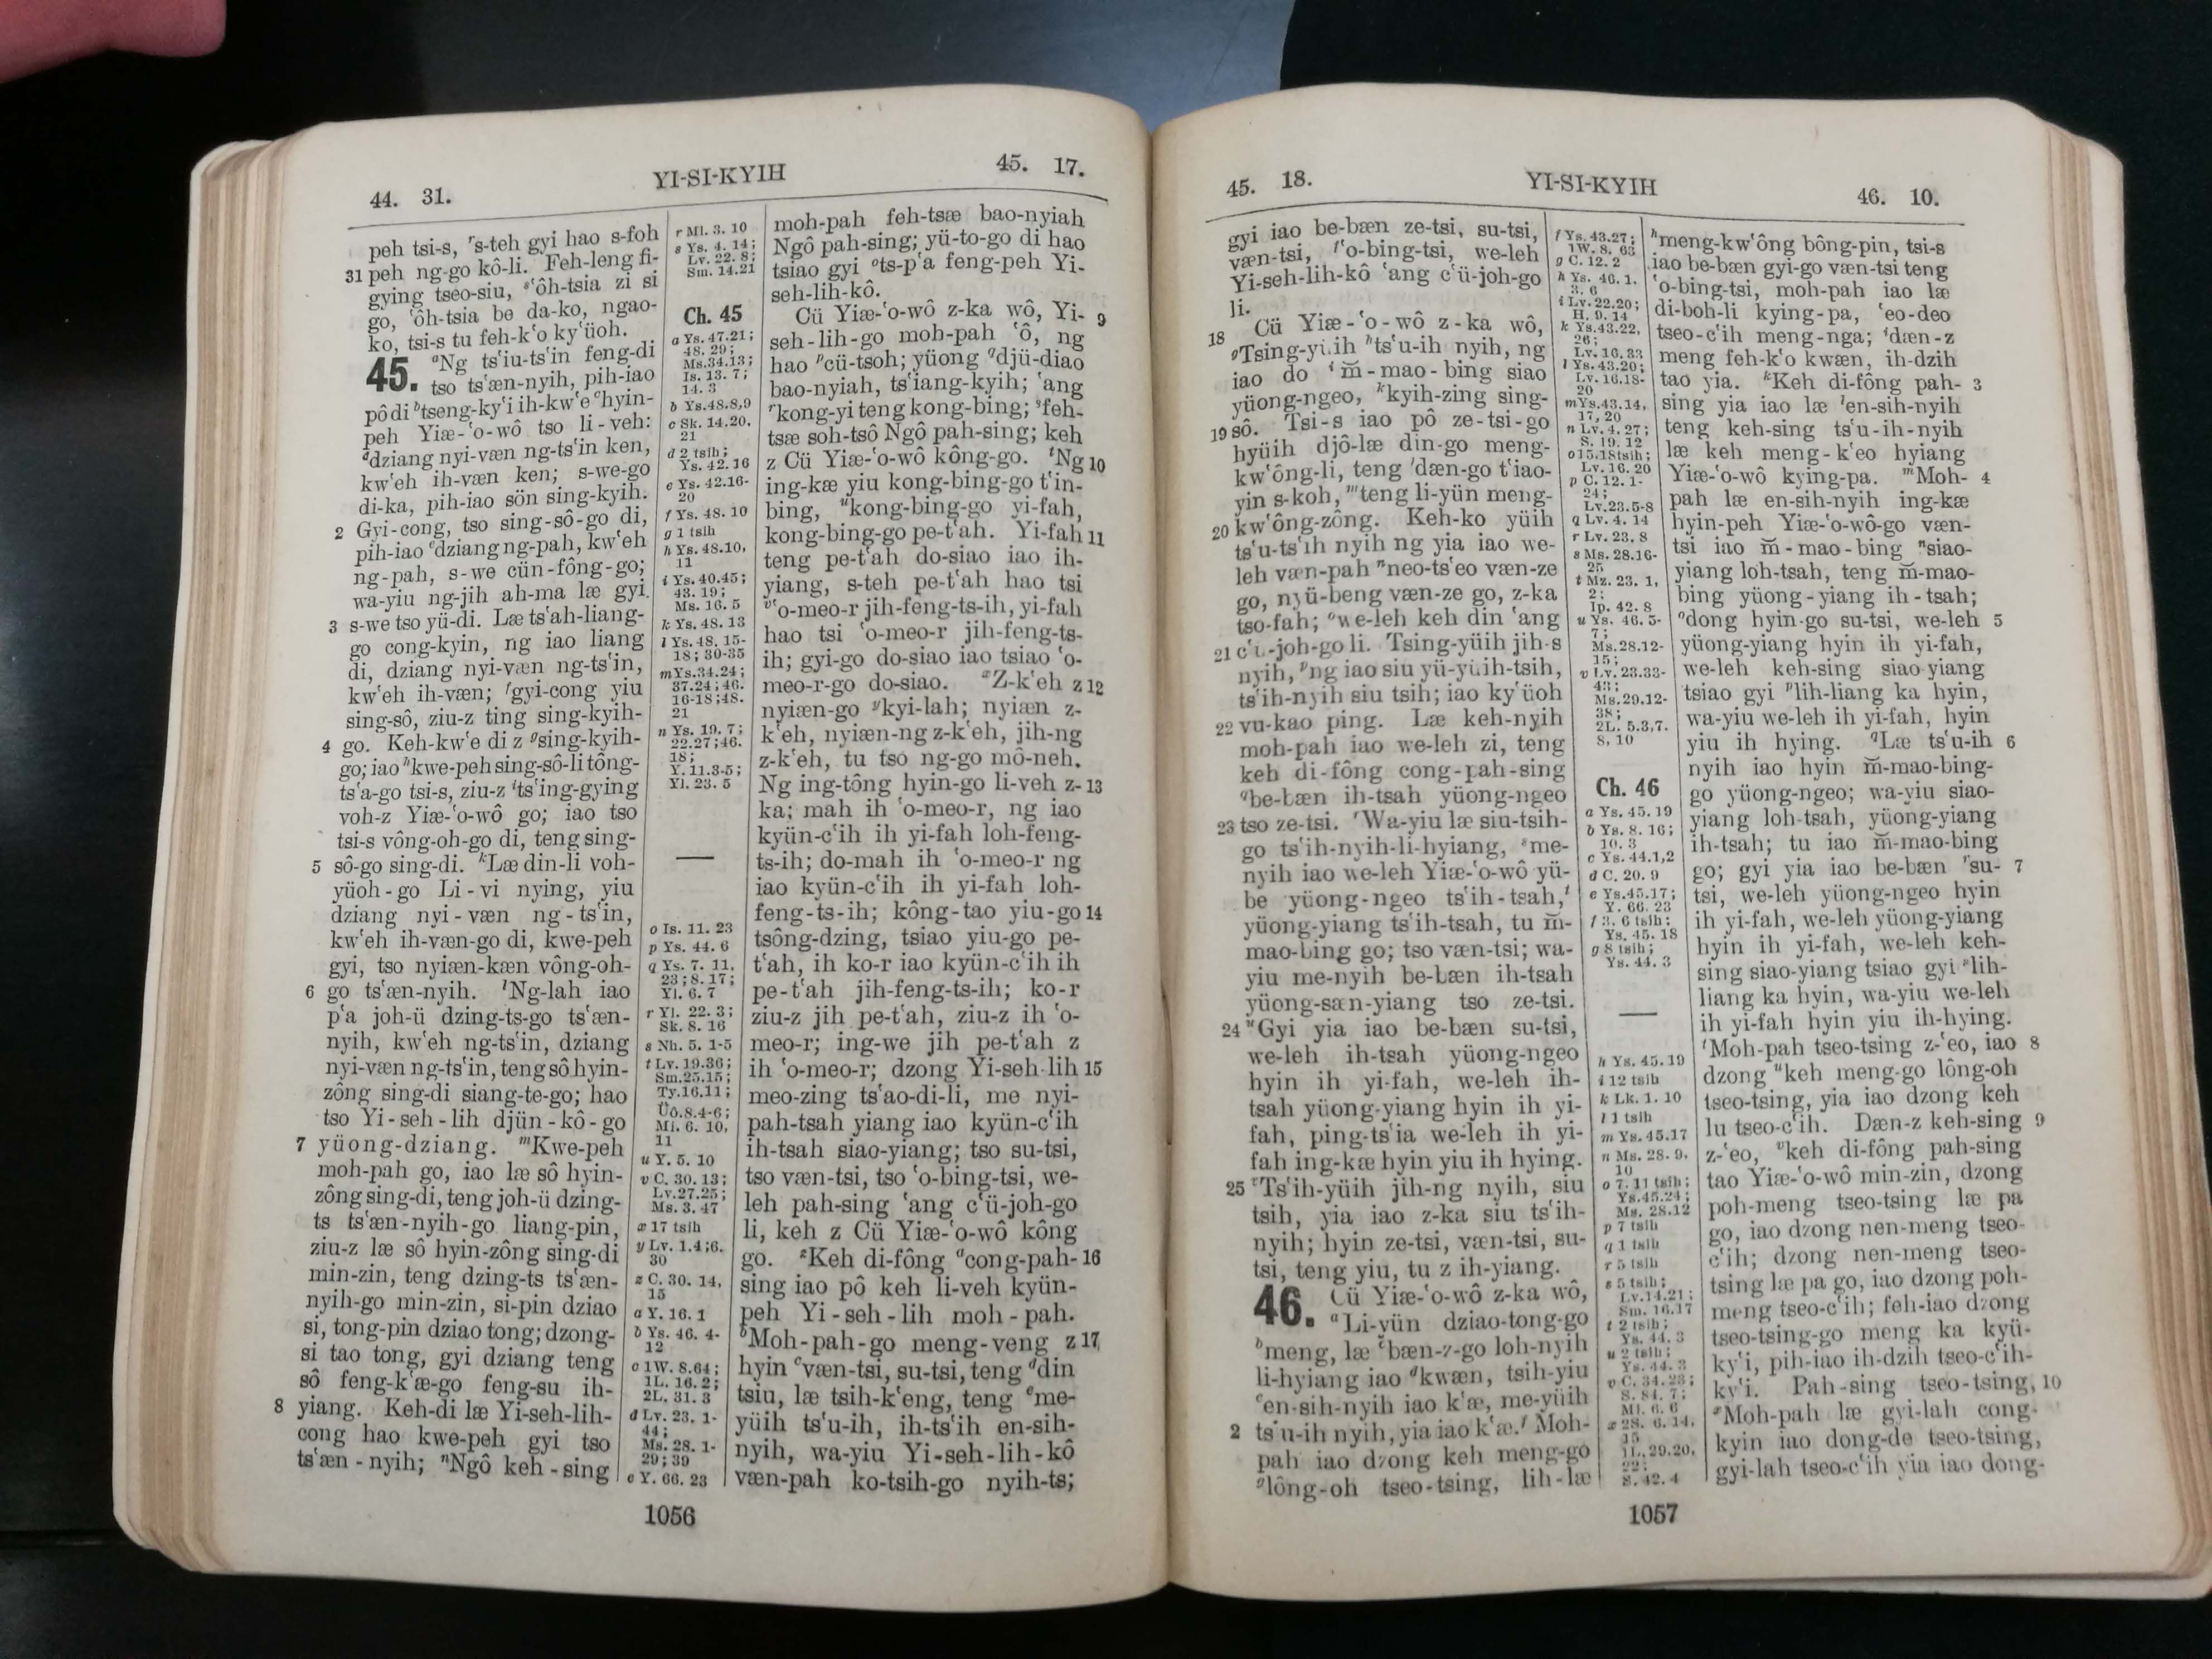 44. 31.
YI-SI-KYIH
45. 17.
peh tsi-s, ʳs-teh gyi hao s-foh
31 peh ng-go kô-li. Feh-leng fi-
gying tseo-siu, ˢʻôh-tsia zi si
go, ʻôh-tsia be da-ko, ngao-
ko, tsi-s tu feh-kʻo kyʻüoh.
45. ᵃNg tsʻiu-tsʻin feng-di
tso tsʻæn-nyih, pih-iao
pô di ᵇtseng-kyʻi ih-kwʻe ᶜhyin-
peh Yiæ-ʻo-wô tso li-veh:
ᵈdziang nyi-væn ng-tsʻin ken,
kwʻeh ih-væn ken; s-we-go
di-ka, pih-iao sön sing-kyih.
2 Gyi-cong, tso sing-sô-go di,
pih-iao ᵉdziang ng-pah, kwʻeh
ng-pah, s-we cün-fông-go;
wa-yiu ng-jih ah-ma læ gyi
s-we tso yü-di. Læ tsʻah-liang-
3 go cong-kyin, ng iao liang
di, dziang nyi-væn ng-tsʻin,
kwʻeh ih-væn; ᶠgyi-cong yiu
sing-sô, ziu-z ting sing-kyih-
4 go. Keh-kwʻe di z ᵍsing-kyih-
go; iao ʰkwe-peh sing-sô-li tông-
tsʻa-go tsi-s, ziu-z ⁱtsʻing-gying
voh-z Yiæ-ʻo-wô go; iao tso
tsi-s vông-oh-go di, teng sing-
sô-go sing-di. ᵏLæ din-li voh-
5 yüoh-go Li-vi nying, yiu
dziang nyi-væn ng-tsʻin,
kwʻeh ih-væn-go di, kwe-peh
gyi, tso nyiæn-kæn vông-oh-
6 go tsʻæn-nyih. ˡNg-lah iao
pʻa joh-ü dzing-ts-go tsʻæn-
nyih, kwʻeh ng-tsʻin, dziang
nyi-væn ng-tsʻin, teng sô hyin-
zông sing-di siang-te-go; hao
tso Yi-seh-lih djün-kô-go
7 yüong-dziang. ᵐKwe-peh
moh-pah go, iao læ sô hyin-
zông sing-di, teng joh-ü dzing-
ts tsʻæn-nyih-go liang-pin,
ziu-z læ sô hyin-zông sing-di
min-zin, teng dzing-ts tsʻæn-
nyih-go min-zin, si-pin dziao
si, tong-pin dziao tong; dzong-
si tao tong, gyi dziang teng
sô feng-kʻæ-go feng-su ih-
8 yiang. Keh-di læ Yi-seh-lih-
cong hao kwe-peh gyi tso
tsʻæn-nyih; ⁿNgô keh-sing
r Ml. 3. 10
s Ys. 4. 14;
Lv. 22. 8;
Sm. 14.21
Ch. 45
a Ys. 47.21;
48. 29;
Ms.34.13;
Is. 13. 7;
14. 3
b Ys.48.8,9
c Sk. 14.20,
21
d 2 tsih;
Ys. 42. 16
e Ys. 42.16-
20
f Ys. 48. 10
g 1 tsih
h Ys. 48.10,
11
i Ys. 40.45;
43. 19;
Ms. 16. 5
k Ys. 48. 13
l Ys. 48. 15-
18; 30-35
m Ys.34.24;
37.24; 46.
16-18; 48.
21
n Ys. 19. 7;
22.27; 46.
18;
Y. 11.3-5;
Yl. 23. 5
o Is. 11. 23
p Ys. 44. 6
q Ys. 7. 11,
23; 8. 17;
Yl. 6. 7
r Yl. 22. 3;
Sk. 8. 16
s Nh. 5. 1-5
t Lv. 19.36;
Sm.25.15;
Ty.16.11;
Üô.8.4-6;
Mi. 6. 10,
11
u Y. 5. 10
v C. 30. 13;
Lv.27.25;
Ms. 3. 47
x 17 tsih
y Lv. 1.4; 6.
30
z C. 30. 14,
15
a Y. 16. 1
b Ys. 46. 4-
12
c 1W. 8.64;
1L. 16. 2;
2L. 31. 3
d Lv. 23. 1-
44;
Ms. 28. 1-
29; 39
e Y. 66. 23
moh-pah feh-tsæ bao-nyiah
Ngô pah-sing; yü-to-go di hao
tsiao gyi ᵒts-pʻa feng-peh Yi-
seh-lih-kô.
Cü Yiæ-ʻo-wô z-ka wô, Yi- 9
seh-lih-go moh-pah ʻô, ng
hao ᵖcü-tsoh; yüong ᑫdjü-diao
bao-nyiah, tsʻiang-kyih; ʻang
ʳkong-yi teng kong-bing; ˢfeh-
tsæ soh-tsô Ngô pah-sing; keh
z Cü Yiæ-ʻo-wô kông-go. ᵗNg 10
ing-kæ yiu kong-bing-go tʻin-
bing, ᵘkong-bing-go yi-fah,
kong-bing-go pe-tʻah. Yi-fah 11
teng pe-tʻah do-siao iao ih-
yiang, s-teh pe-tʻah hao tsi
ᵛʻo-meo-r jih-feng-ts-ih, yi-fah
hao tsi ʻo-meo-r jih-feng-ts-
ih; gyi-go do-siao iao tsiao ʻo-
meo-r-go do-siao. ˣZ-kʻeh z 12
nyiæn-go ʸkyi-lah; nyiæn z-
kʻeh, nyiæn-ng z-kʻeh, jih-ng
z-kʻeh, tu tso ng-go mô-neh.
Ng ing-tông hyin-go li-veh z- 13
ka; mah ih ʻo-meo-r, ng iao
kyün-cʻih ih yi-fah loh-feng-
ts-ih; do-mah ih ʻo-meo-r ng
iao kyün-cʻih ih yi-fah loh-
feng-ts-ih; kông-tao yiu-go 14
tsông-dzing, tsiao yiu-go pe-
tʻah, ih ko-r iao kyün-cʻih ih
pe-tʻah jih-feng-ts-ih; ko-r
ziu-z jih pe-tʻah, ziu-z ih ʻo-
meo-r; ing-we jih pe-tʻah z
ih ʻo-meo-r; dzong Yi-seh-lih 15
meo-zing tsʻao-di-li, me nyi-
pah-tsah yiang iao kyün-cʻih
ih-tsah siao-yiang; tso su-tsi,
tso væn-tsi, tso ʻo-bing-tsi, we-
leh pah-sing ʻang cʻü-joh-go
li, keh z Cü Yiæ-ʻo-wô kông
go. ᶻKeh di-fông ᵃcong-pah- 16
sing iao pô keh li-veh kyün-
peh Yi-seh-lih moh-pah.
ᵇMoh-pah-go meng-veng z 17
hyin ᶜvæn-tsi, su-tsi, teng ᵈdin
tsiu, læ tsih-kʻeng, teng ᵉme-
yüih tsʻu-ih, ih-tsʻih en-sih-
nyih, wa-yiu Yi-seh-lih-kô
væn-pah ko-tsih-go nyih-ts;
1056
45. 18.
YI-SI-KYIH
46. 10.
gyi iao be-bæn ze-tsi, su-tsi,
væn-tsi, ᶠʻo-bing-tsi, we-leh
Yi-seh-lih-kô ʻang cʻü-joh-go
li.
18 Cü Yiæ-ʻo-wô z-ka wô,
ᵍTsing-yüih ʰtsʻu-ih nyih, ng
iao do ⁱm̆-mao-bing siao
yüong-ngeo, ᵏkyih-zing sing-
19 sô. Tsi-s iao pô ze-tsi-go
hyüih djô-læ din-go meng-
kwʻông-li, teng ˡdæn-go tʻiao-
yin s-koh, ᵐteng li-yün meng-
20 kwʻông-zông. Keh-ko yüih
tsʻu-tsʻih nyih ng yia iao we-
leh væn-pah ⁿneo-tsʻeo væn-ze
go, nyü-beng væn-ze go, z-ka
tso-fah; ᵒwe-leh keh din ʻang
21 cʻü-joh-go li. Tsing-yüih jih-s
nyih, ᵖng iao siu yü-yüih-tsih,
tsʻih-nyih siu tsih; iao kyʻüoh
22 vu-kao ping. Læ keh-nyih
moh-pah iao we-leh zi, teng
keh di-fông cong-pah-sing
ᑫbe-bæn ih-tsah yüong-ngeo
23 tso ze-tsi. ʳWa-yiu læ siu-tsih-
go tsʻih-nyih-li-hyiang, ˢme-
nyih iao we-leh Yiæ-ʻo-wô yü-
be yüong-ngeo tsʻih-tsah,ᵗ
yüong-yiang tsʻih-tsah, tu m̆-
mao-bing go; tso væn-tsi; wa-
yiu me-nyih be-bæn ih-tsah
yüong-sæn-yiang tso ze-tsi.
24 ᵘGyi yia iao be-bæn su-tsi,
we-leh ih-tsah yüong-ngeo
hyin ih yi-fah, we-leh ih-
tsah yüong-yiang hyin ih yi-
fah, ping-tsʻia we-leh ih yi-
fah ing-kæ hyin yiu ih hying.
25 ᵛTsʻih-yüih jih-ng nyih, siu
tsih, yia iao z-ka siu tsʻih-
nyih; hyin ze-tsi, væn-tsi, su-
tsi, teng yiu, tu z ih-yiang.
46. Cü Yiæ-ʻo-wô z-ka wô,
ᵃLi-yün dziao-tong-go
ᵇmeng, læ ᶜbæn-z-go loh-nyih
li-hyiang iao ᵈkwæn, tsih-yiu
ᵉen-sih-nyih iao kʻæ, me-yüih
2 tsʻu-ih nyih, yia iao kʻæ.ᶠ Moh-
pah iao dzong keh meng-go
ᵍlông-oh tseo-tsing, lih-læ
f Ys. 43.27;
1W. 8. 63
g C. 12. 2
h Ys. 46. 1,
3. 6
i Lv. 22.20;
H. 9. 14
k Ys.43.22,
26;
Lv. 16. 33
l Ys. 43.20;
Lv. 16.18-
20
m Ys.43.14,
17, 20
n Lv. 4. 27;
S. 19. 12
o 15.18tsih;
Lv. 16. 20
p C. 12. 1-
24;
Lv.23.5-8
q Lv. 4. 14
r Lv. 23. 8
s Ms. 28.16-
25
t Mz. 23. 1,
2;
Ip. 42. 8
u Ys. 46. 5-
7;
Ms.28.12-
15;
v Lv. 23.33-
43;
Ms.29.12-
38;
2L. 5.3,7.
8, 10
Ch. 46
a Ys. 45. 19
b Ys. 8. 16;
10. 3
c Ys. 44.1,2
d C. 20. 9
e Ys.45.17;
Y. 66. 23
f 3. 6 tsih;
Ys. 45. 18
g 8 tsih;
Ys. 44. 3
h Ys. 45. 19
i 12 tsih
k Lk. 1. 10
l 1 tsih
m Ys. 45.17
n Ms. 28. 9,
10
o 7. 11 tsih;
Ys.45.24;
Ms. 28.12
p 7 tsih
q 1 tsih
r 5 tsih
s 5 tsih;
Lv.14.21;
Sm. 16.17
t 2 tsih;
Ys. 44. 3
u 2 tsih;
Ys. 44. 3
v C. 34. 23;
S. 84. 7;
Ml. 6. 6
x 2S. 6. 14,
15
1L. 29.20,
22;
S. 42. 4
ʰmeng-kwʻông bông-pin, tsi-s
iao be-bæn gyi-go væn-tsi teng
ʻo-bing-tsi, moh-pah iao læ
di-boh-li kying-pa, ʻeo-deo
tseo-cʻih meng-nga; ⁱdæn-z
meng feh-kʻo kwæn, ih-dzih
tao yia. ᵏKeh di-fông pah- 3
sing yia iao læ ˡen-sih-nyih
teng keh-sing tsʻu-ih-nyih
læ keh meng-kʻeo hyiang
Yiæ-ʻo-wô kying-pa. ᵐMoh- 4
pah læ en-sih-nyih ing-kæ
hyin-peh Yiæ-ʻo-wô-go væn-
tsi iao m̆-mao-bing ⁿsiao-
yiang loh-tsah, teng m̆-mao-
bing yüong-yiang ih-tsah;
ᵒdong hyin-go su-tsi, we-leh 5
yüong-yiang hyin ih yi-fah,
we-leh keh-sing siao-yiang
tsiao gyi ᵖlih-liang ka hyin,
wa-yiu we-leh ih yi-fah, hyin
yiu ih hying. ᑫLæ tsʻu-ih 6
nyih iao hyin m̆-mao-bing-
go yüong-ngeo; wa-yiu siao-
yiang loh-tsah, yüong-yiang
ih-tsah; tu iao m̆-mao-bing
go; gyi yia iao be-bæn ʳsu- 7
tsi, we-leh yüong-ngeo hyin
ih yi-fah, we-leh yüong-yiang
hyin ih yi-fah, we-leh keh-
sing siao-yiang tsiao gyi ˢlih-
liang ka hyin, wa-yiu we-leh
ih yi-fah hyin yiu ih-hying.
ᵗMoh-pah tseo-tsing z-ʻeo, iao 8
dzong ᵘkeh meng-go lông-oh
tseo-tsing, yia iao dzong keh
lu tseo-cʻih. Dæn-z keh-sing 9
z-ʻeo, ᵛkeh di-fông pah-sing
tao Yiæ-ʻo-wô min-zin, dzong
poh-meng tseo-tsing læ pa
go, iao dzong nen-meng tseo-
cʻih; dzong nen-meng tseo-
tsing læ pa go, iao dzong poh-
meng tseo-cʻih; feh-iao dzong
tseo-tsing-go meng ka kyü-
kyʻi, pih-iao ih-dzih tseo-cʻih-
kyʻi. Pah-sing tseo-tsing, 10
ˣMoh-pah læ gyi-lah cong-
kyin iao dong-de tseo-tsing,
gyi-lah tseo-cʻih yia iao dong-
1057